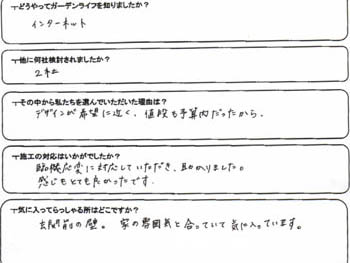 どうやってガーデンライフを知りましたか？
インターネット
他に何社検討されましたか？
2社
その中から私たちを選んでいただいた理由は？
デザインが希望に近く、値段も予算内だったから。
施工の対応はいかがでしたか？
臨機応変に対応していただき、助かりました。
感じもとても良かったです。
気に入ってらっしゃる所はどこですか？
玄関前の壁。家の雰囲気と合っていて気に入っています。